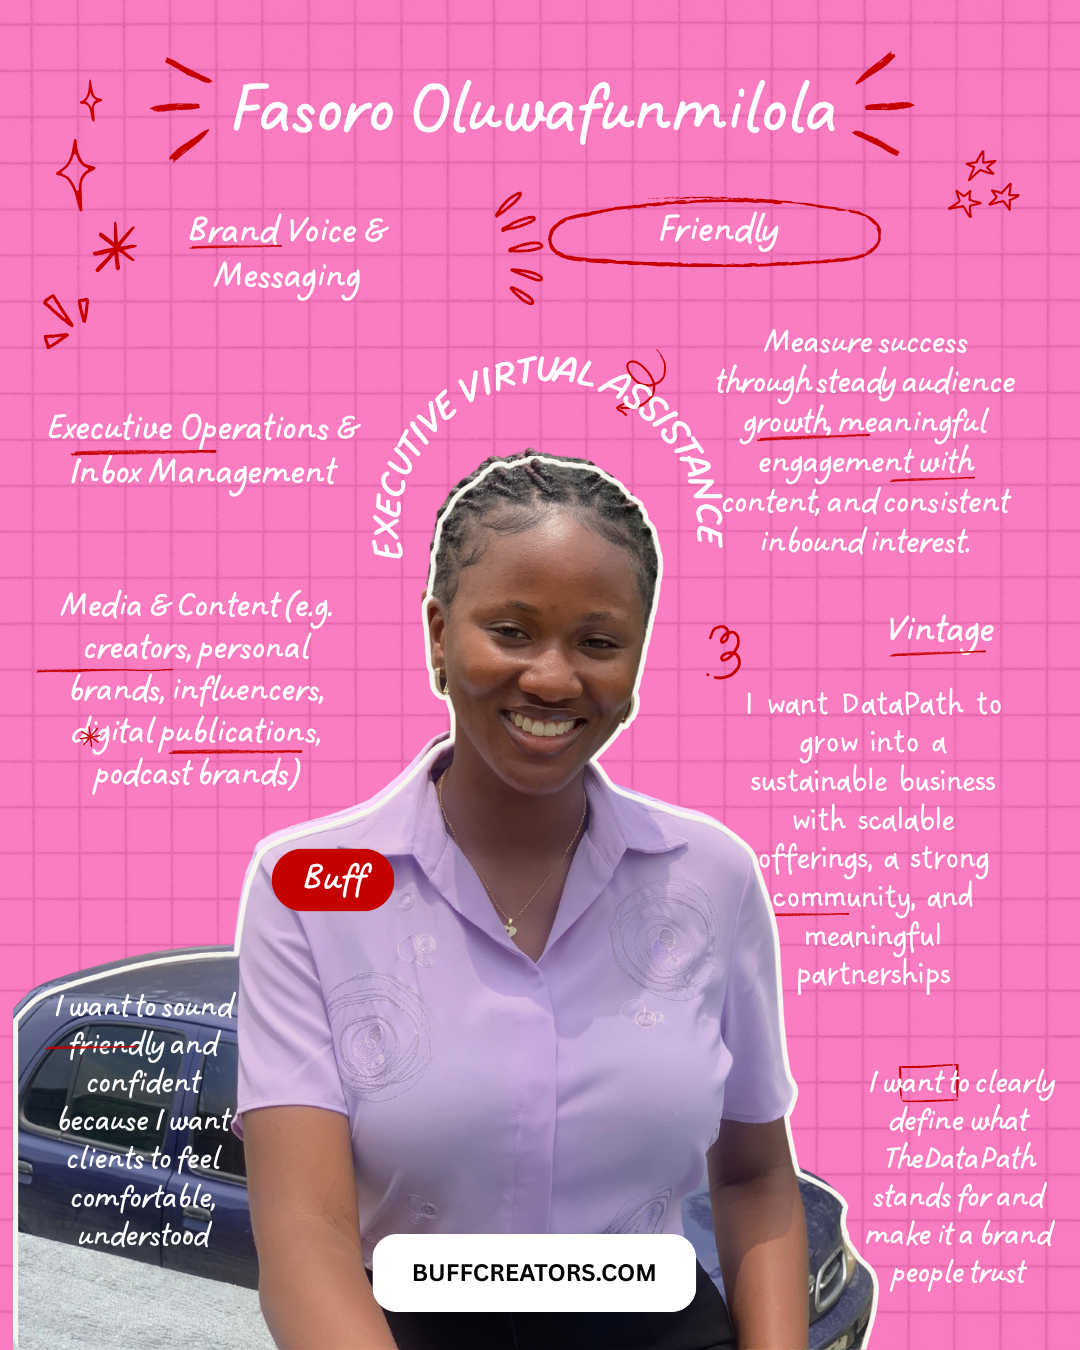 Fasoro Oluwafunmilola
Brand Voice &
Messaging
Friendly
EXECUTIVE VIRTUAL ASSISTANCE
Executive Operations &
Inbox Management
Measure success
through steady audience
growth, meaningful
engagement with
content, and consistent
inbound interest.
Media & Content (e.g.
creators, personal
brands, influencers,
digital publications,
podcast brands)
Vintage
I want DataPath to
grow into a
sustainable business
with scalable
offerings, a strong
community, and
meaningful
partnerships
Buff
I want to sound
friendly and
confident
because I want
clients to feel
comfortable,
understood
I want to clearly
define what
TheDataPath
stands for and
make it a brand
people trust
BUFFCREATORS.COM